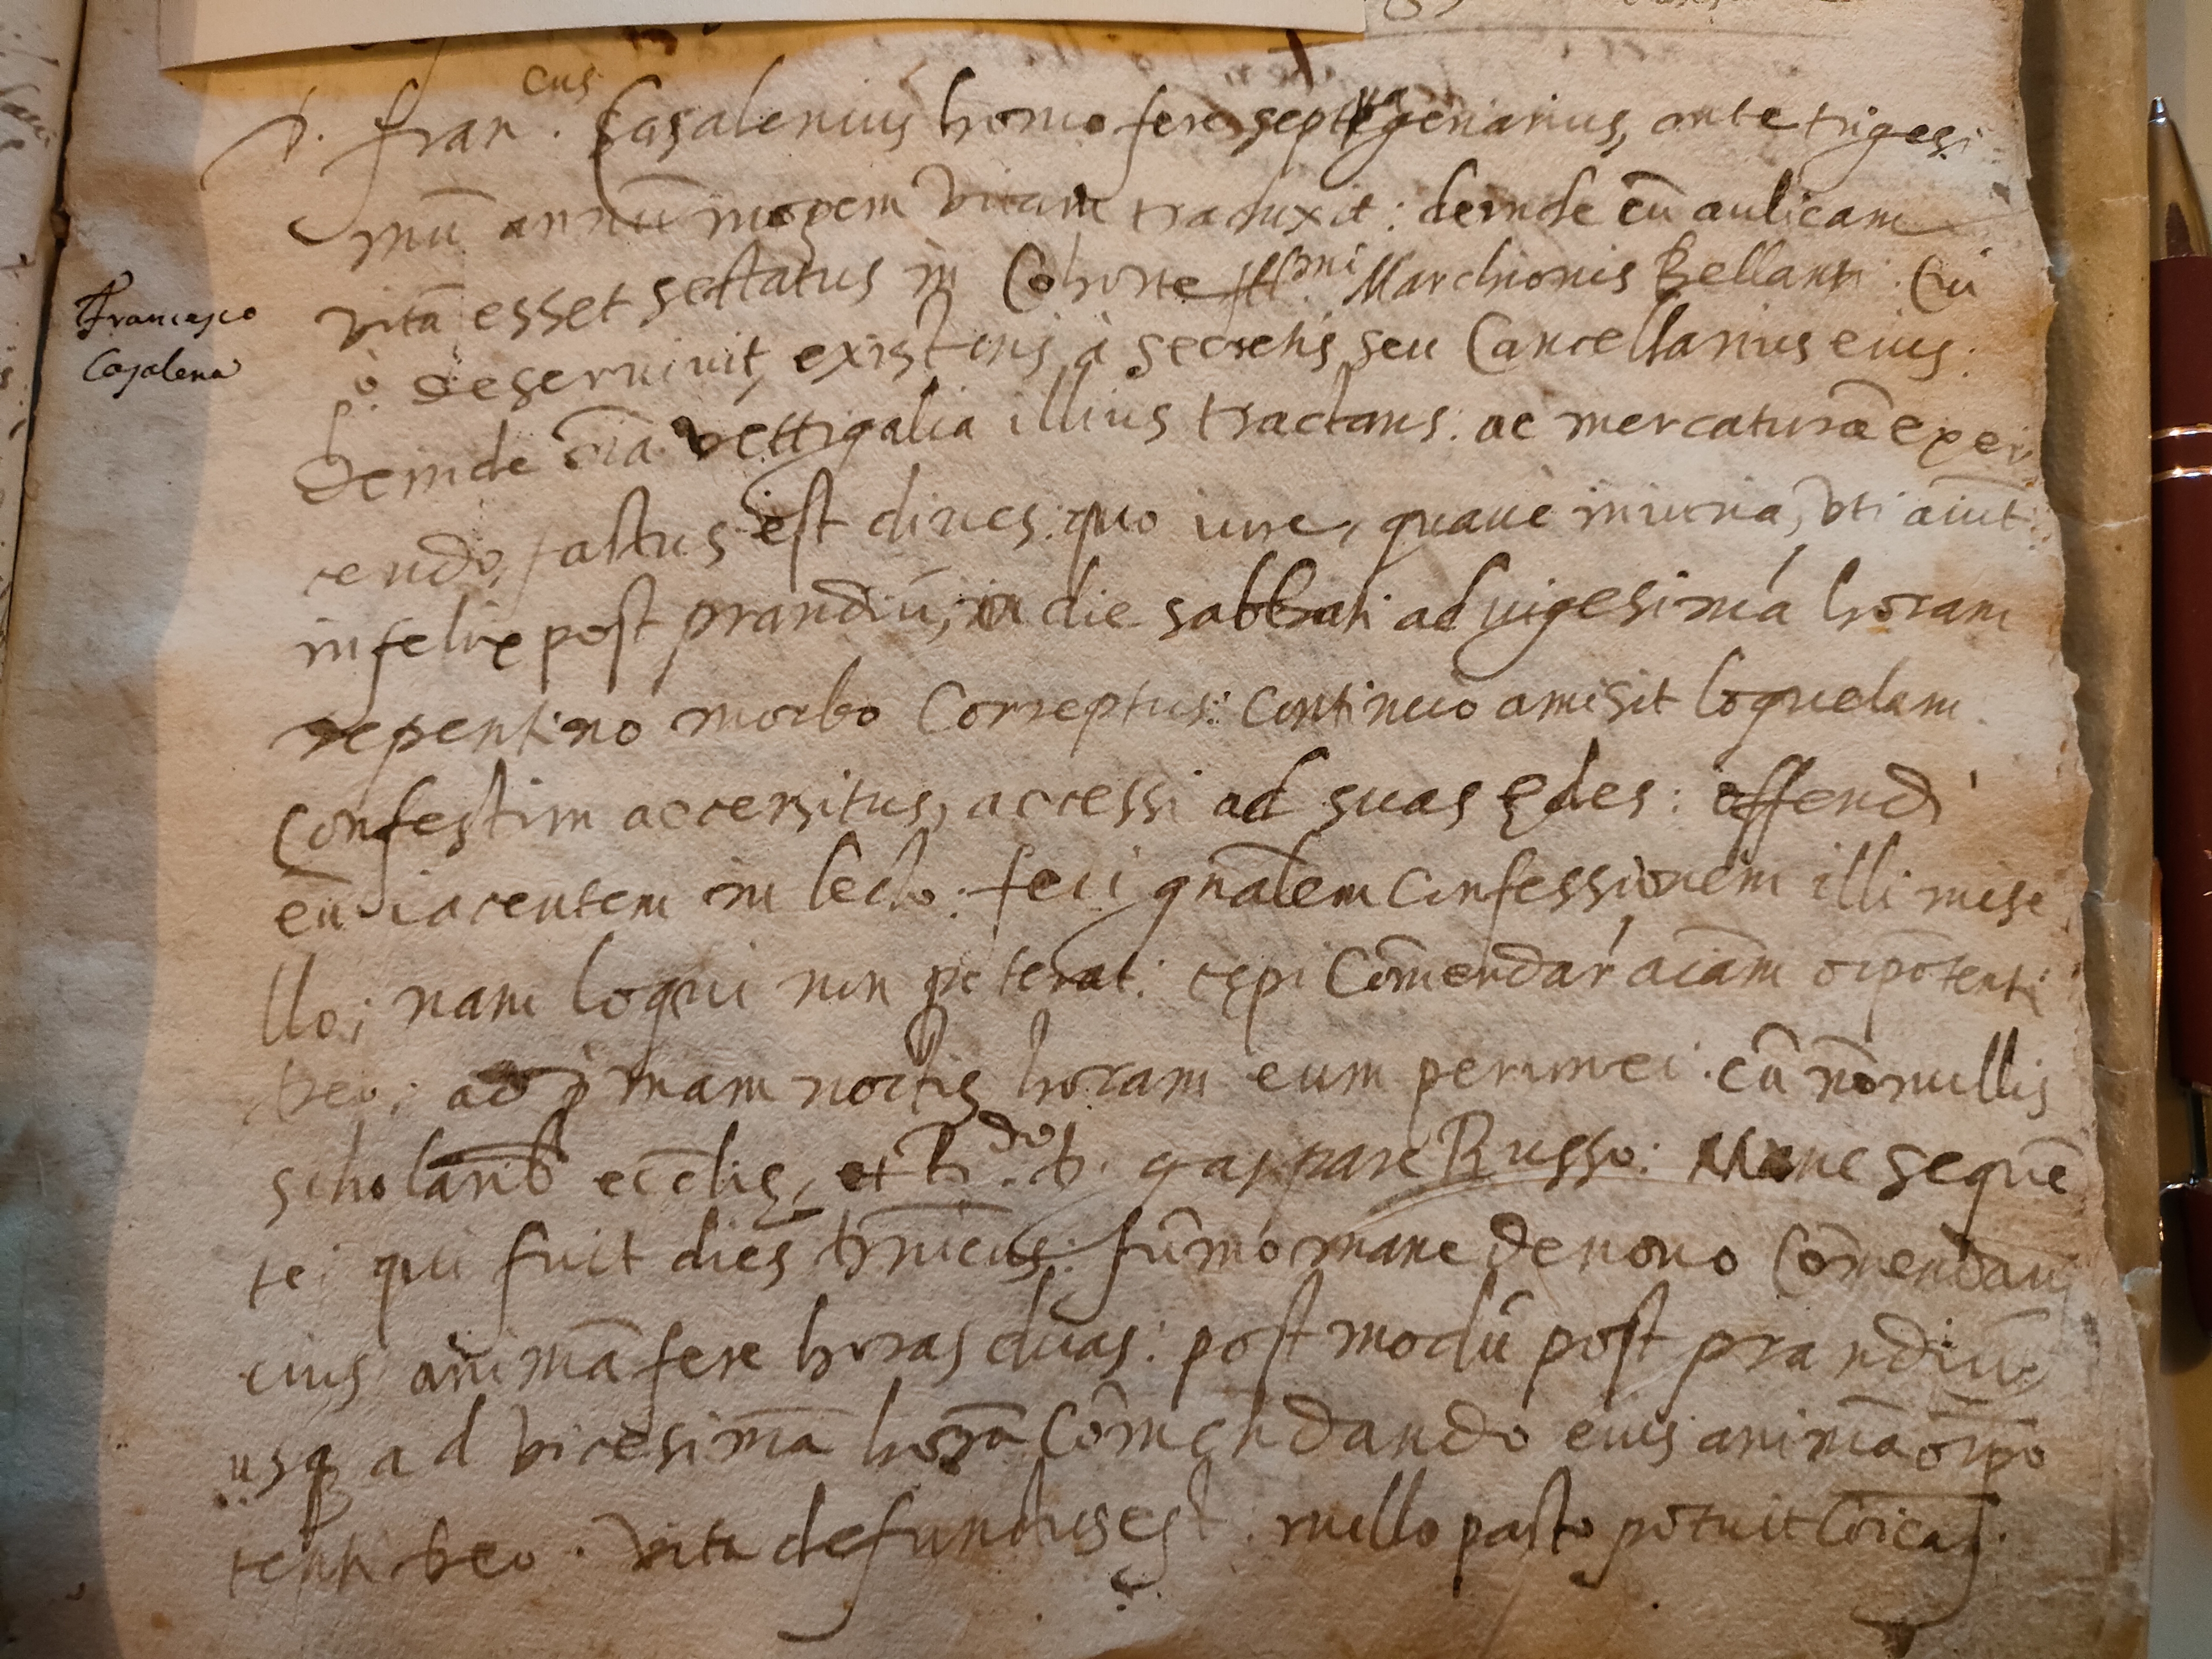 D. Fran.cus Casalenius homo fere septuagenarius, ante trigesi
mū annū inopem vitam traduxit: deinde cū aulicam
vitā esset sectatus in Cohorte Ill.mi Marchionis Bellanti: Cui
deservivit, existens à secretis seu Cancellarius eius:
Deinde oīa vettigalia illius tractans: ac mercaturā exer
cendo, factus est dives: quo iure, quave iniuria, uti aiūt:
infelix post prandiū, in die sabbati ad vigesimā horam
repentino morbo Correptus: Continuo amisit loquelam.
Confestim accersitus, accessi ad suas ędes: offendi
eū iacentem in lecto: feci gn̄alem Confessionem illi mise
llo; nam loqui non poterat: cępi Cōmendar' aīam oīpotenti
Deo: ad primam noctis horam eum permansi: cū nōnullis
scholarib' ecclię, et R.do D. gaspare Russo: Mane sequē
te: qui fuit dies dn̄icus: sūmo mane denovo Cōmendavi
eius animā fere horas duas: postmodū post prandiū,
usq; ad vicesimā horā Cōmendando eius animā oīpo
tenti Deo. vita defunctus est: nullo pacto potuit
Francesco
Casalena